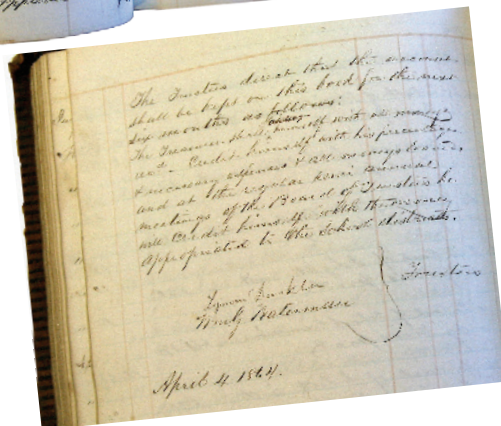 The Trustees direct that the accounts
shall be kept on this book for the next
six months as follows:
The Treasurer shall charge himself with all moneys
rec'd - Credit himself with his percentage
& necessary expenses & all moneys loaned,
and at the regular semi annual
meetings of the Board of Trustees he
will Credit himself with the moneys
appropriated to the School districts.
Lyman
Wm G Waterman
Trustees
April 4 1864.